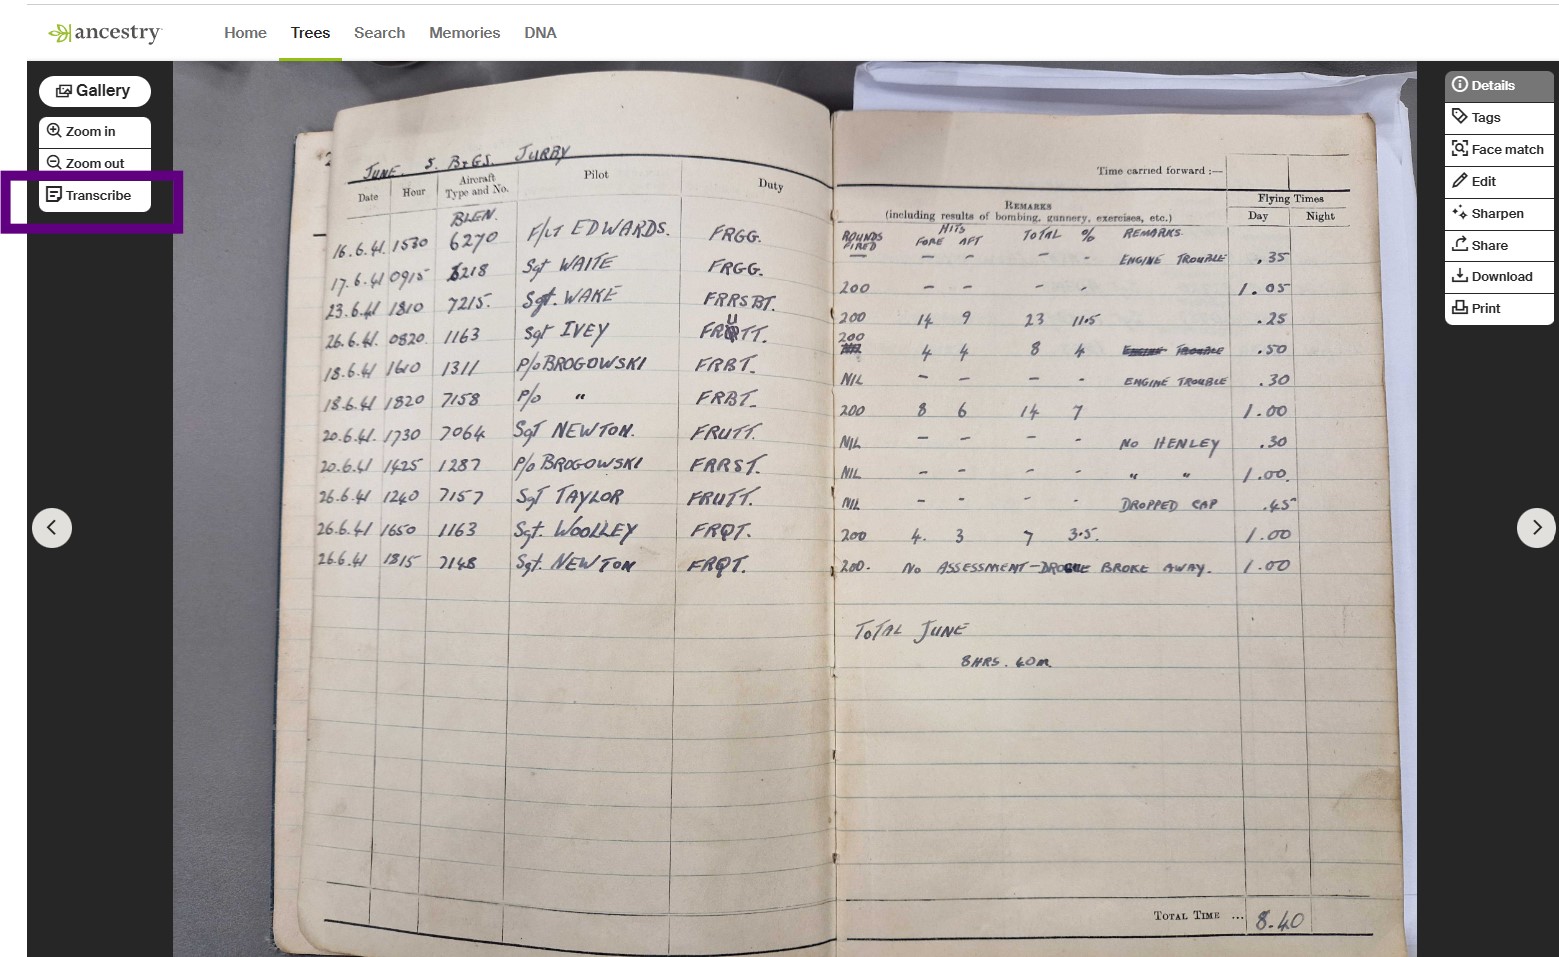 ancestry
Home Trees Search Memories DNA
Gallery
Zoom in
Zoom out
Transcribe
Details
Tags
Face match
Edit
Sharpen
Share
Download
Print
JUNE. 5. B&GS. JURBY
Date Hour Aircraft Type and No. Pilot Duty
BLEN.
16.6.41. 1530 6270 F/LT EDWARDS. FRGG.
17.6.41 0915 6218 Sgt WAITE FRGG.
23.6.41 1810 7215. Sgt. WAKE FRRSBT.
26.6.41. 0820. 1163 Sgt IVEY FRUTT.
18.6.41 1610 1311 P/o BROGOWSKI FRBT.
18.6.41 1820 7158 P/o " FRBT.
20.6.41. 1730 7064 Sgt NEWTON. FRUTT.
20.6.41 1425 1287 P/o BROGOWSKI FRRST.
26.6.41 1240 7157 Sgt TAYLOR FRUTT.
26.6.41 1650 1163 Sgt. WOOLLEY FRQT.
26.6.41 1815 7148 Sgt. NEWTON FRQT.
Time carried forward :—
REMARKS
(including results of bombing, gunnery, exercises, etc.)
Flying Times
Day Night
ROUNDS FIRED HITS FORE AFT TOTAL % REMARKS
— – – – - ENGINE TROUBLE .35
200 – – – - 1.05
200 14 9 23 11.5 .25
200 4 4 8 4 ENGINE TROUBLE .50
NIL – – – - ENGINE TROUBLE .30
200 8 6 14 7 1.00
NIL – – – - NO HENLEY .30
NIL – – – - " " 1.00.
NIL – – – - DROPPED CAP .45
200 4. 3 7 3.5. 1.00
200. NO ASSESSMENT – DROGUE BROKE AWAY. 1.00
TOTAL JUNE
8HRS. 40m
TOTAL TIME ... 8.40